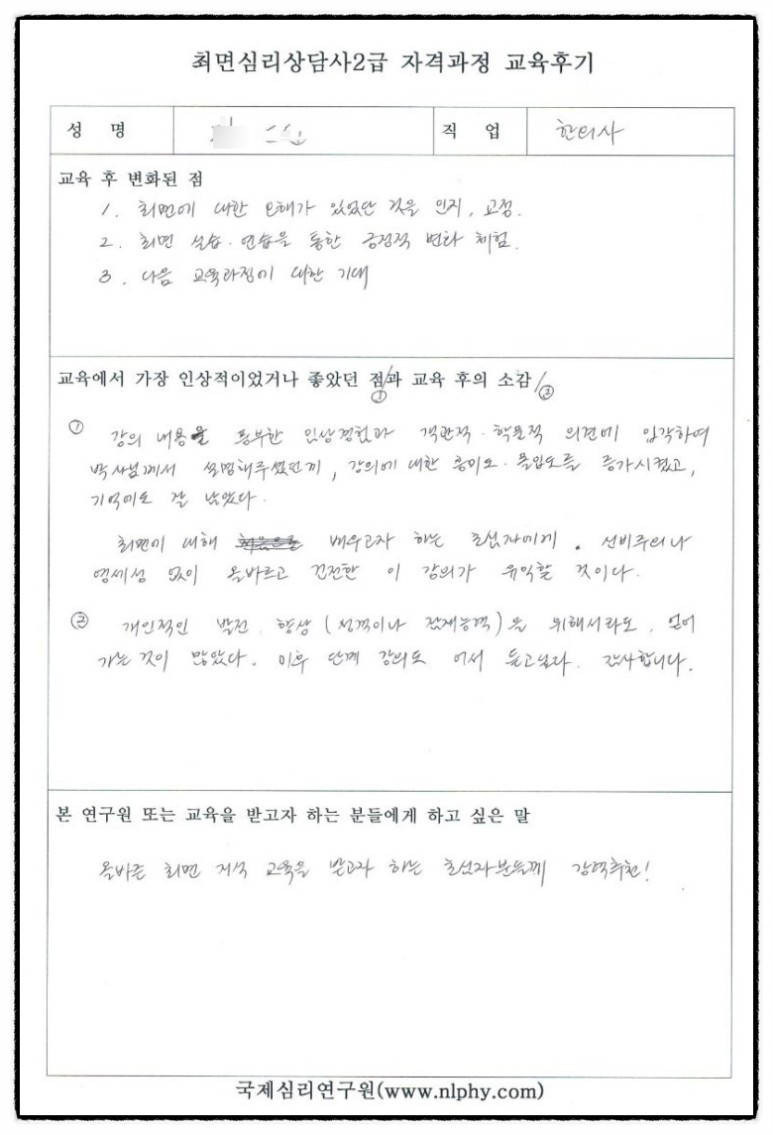 최면심리상담사2급 자격과정 교육후기
성 명
직 업 한의사
교육 후 변화된 점
1. 최면에 대한 오해가 있었던 것을 인지, 교정.
2. 최면 실습·연습을 통한 긍정적 변화 체험.
3. 다음 교육과정에 대한 기대
교육에서 가장 인상적이었거나 좋았던 점/과 교육 후의 소감/②
①
① 강의 내용을 풍부한 임상경험과 객관적·학문적 의견에 입각하여
박사님께서 설명해주셨던게, 강의에 대한 흥미도·몰입도를 증가시켰고,
기억에도 잘 남았다.
최면에 대해 배우고자 하는 초심자에게. 신비주의나
영세성 없이 올바르고 건전한 이 강의가 유익할 것이다.
② 개인적인 발전, 향상(성격이나 잠재능력)을 위해서라도, 얻어
가는 것이 많았다. 이후 단계 강의도 어서 듣고싶다. 감사합니다.
본 연구원 또는 교육을 받고자 하는 분들에게 하고 싶은 말
올바른 최면 지식 교육을 받고자 하는 초심자분들께 강력추천!
국제심리연구원(www.nlphy.com)